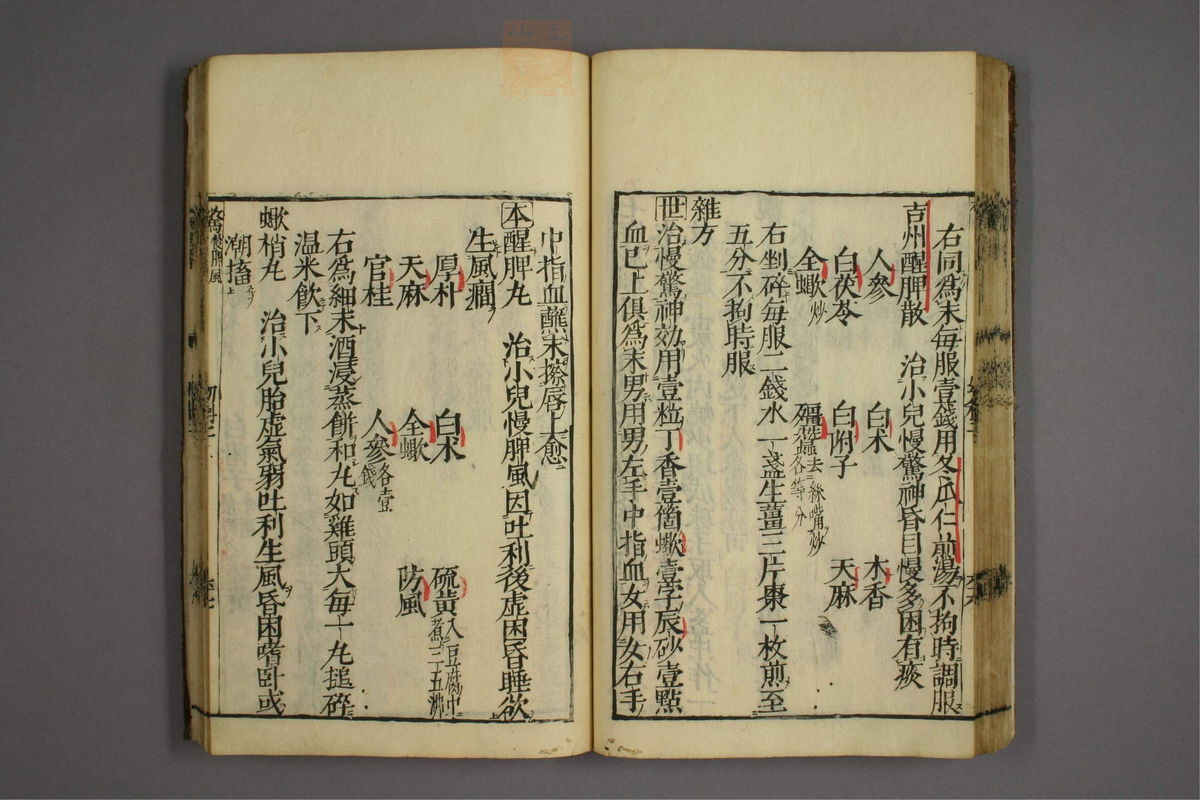 右同爲末每服壹錢用冬瓜仁煎湯不拘時調服
吉州醒脾散 治小兒慢驚神昏目慢多困有痰
人參 白术 木香
白茯苓 白附子 天麻
全蠍炒 殭蠶去絲嘴炒各等分
右剉碎每服二錢水一盞生薑三片棗一枚煎至
五分不拘時服
雜方
世治慢驚神効用壹粒丁香壹箇蠍壹字辰砂壹點
血已上俱爲末男用男左手中指血女用女右手
中指血蘸末擦唇上愈
本醒脾丸 治小兒慢脾風因吐利後虛困昏睡欲
生風癇
厚朴 白术 硫黃入豆腐中煮三五沸
天麻 全蠍 防風
官桂 人參各壹錢
右爲細末酒浸蒸餅和丸如雞頭大每一丸搥碎
溫米飮下
蠍梢丸 治小兒胎虛氣弱吐利生風昏困嗜卧或
潮搐